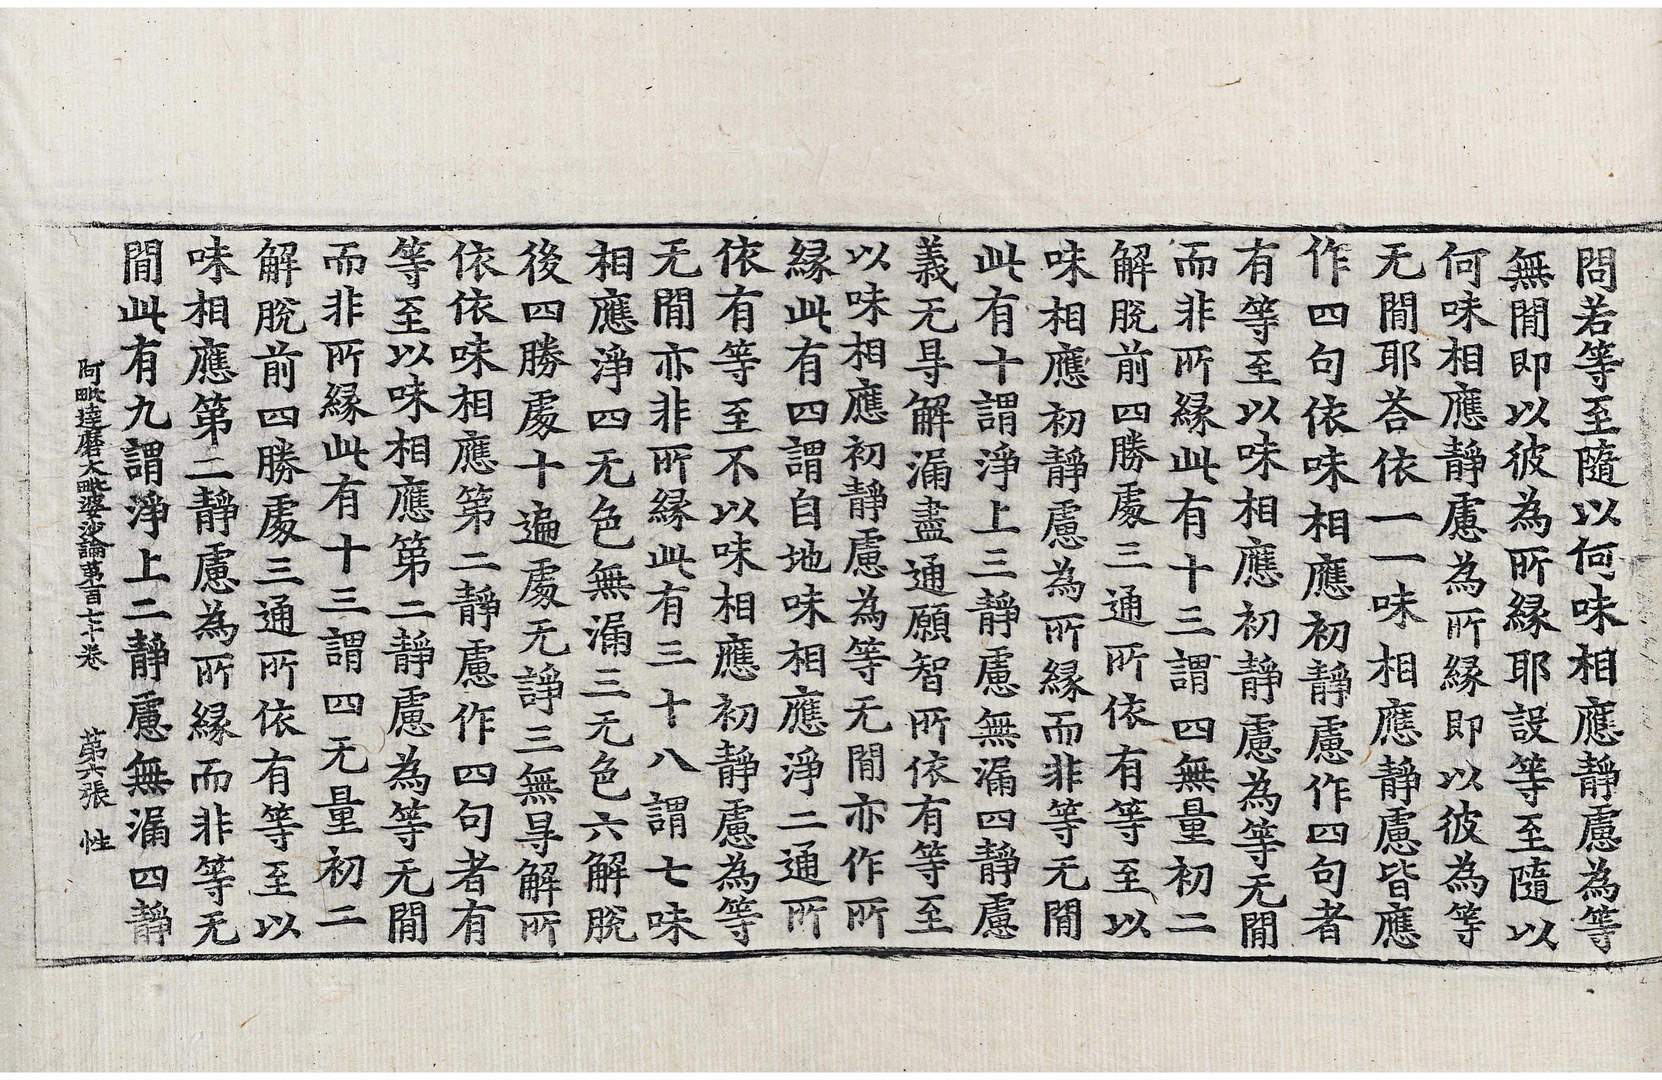 問若等至隨以何味相應靜慮為等
無間即以彼為所縁耶設等至隨以
何味相應靜慮為所縁即以彼為等
无間耶荅依一一味相應靜慮皆應
作四句依味相應初靜慮作四句者
有等至以味相應初靜慮為等无間
而非所縁此有十三謂四無量初二
解脫前四勝處三通所依有等至以
味相應初靜慮為所縁而非等无間
此有十謂淨上三靜慮無漏四靜慮
義无㝵解漏盡通願智所依有等至
以味相應初靜慮為等无間亦作所
縁此有四謂自地味相應淨二通所
依有等至不以味相應初靜慮為等
无間亦非所縁此有三十八謂七味
相應淨四无色無漏三无色六解脫
後四勝處十遍處无諍三無㝵解所
依依味相應第二靜慮作四句者有
等至以味相應第二靜慮為等无間
而非所縁此有十三謂四无量初二
解脫前四勝處三通所依有等至以
味相應第二靜慮為所縁而非等无
間此有九謂淨上二靜慮無漏四靜
阿毗達磨大毗婆沙論苐百七十卷 苐六張 性